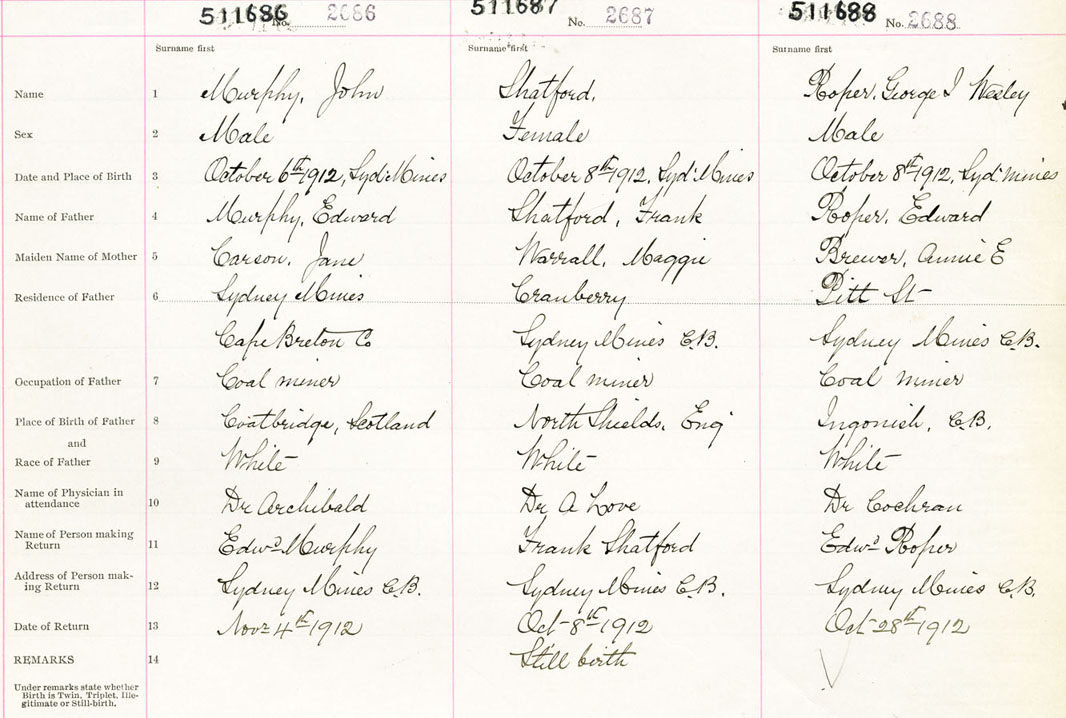 511686 No. 2686 511687 No. 2687 511688 No. 2688
Surname first Surname first Surname first
Name 1 Murphy, John Shatford, Roper, George I Wesley
Sex 2 Male Female Male
Date and Place of Birth 3 October 6th 1912, Syd. Mines October 8th 1912, Syd. Mines October 8th 1912, Syd. Mines
Name of Father 4 Murphy, Edward Shatford, Frank Roper, Edward
Maiden Name of Mother 5 Carson, Jane Warrall, Maggie Brewer, Annie E
Residence of Father 6 Sydney Mines Cranberry Pitt St
Cape Breton Co Sydney Mines C.B. Sydney Mines C.B.
Occupation of Father 7 Coal miner Coal miner Coal miner
Place of Birth of Father 8 Coatbridge, Scotland North Shields, Eng Ingonish, C.B.
and
Race of Father 9 White White White
Name of Physician in
attendance 10 Dr Archibald Dr A Love Dr Cochran
Name of Person making
Return 11 Edwd Murphy Frank Shatford Edwd Roper
Address of Person mak-
ing Return 12 Sydney Mines C.B. Sydney Mines C.B. Sydney Mines C.B.
Date of Return 13 Novr 4th 1912 Oct 8th 1912 Oct 28th 1912
REMARKS 14 Still birth
Under remarks state whether
Birth is Twin, Triplet, Ille-
gitimate or Still-birth.